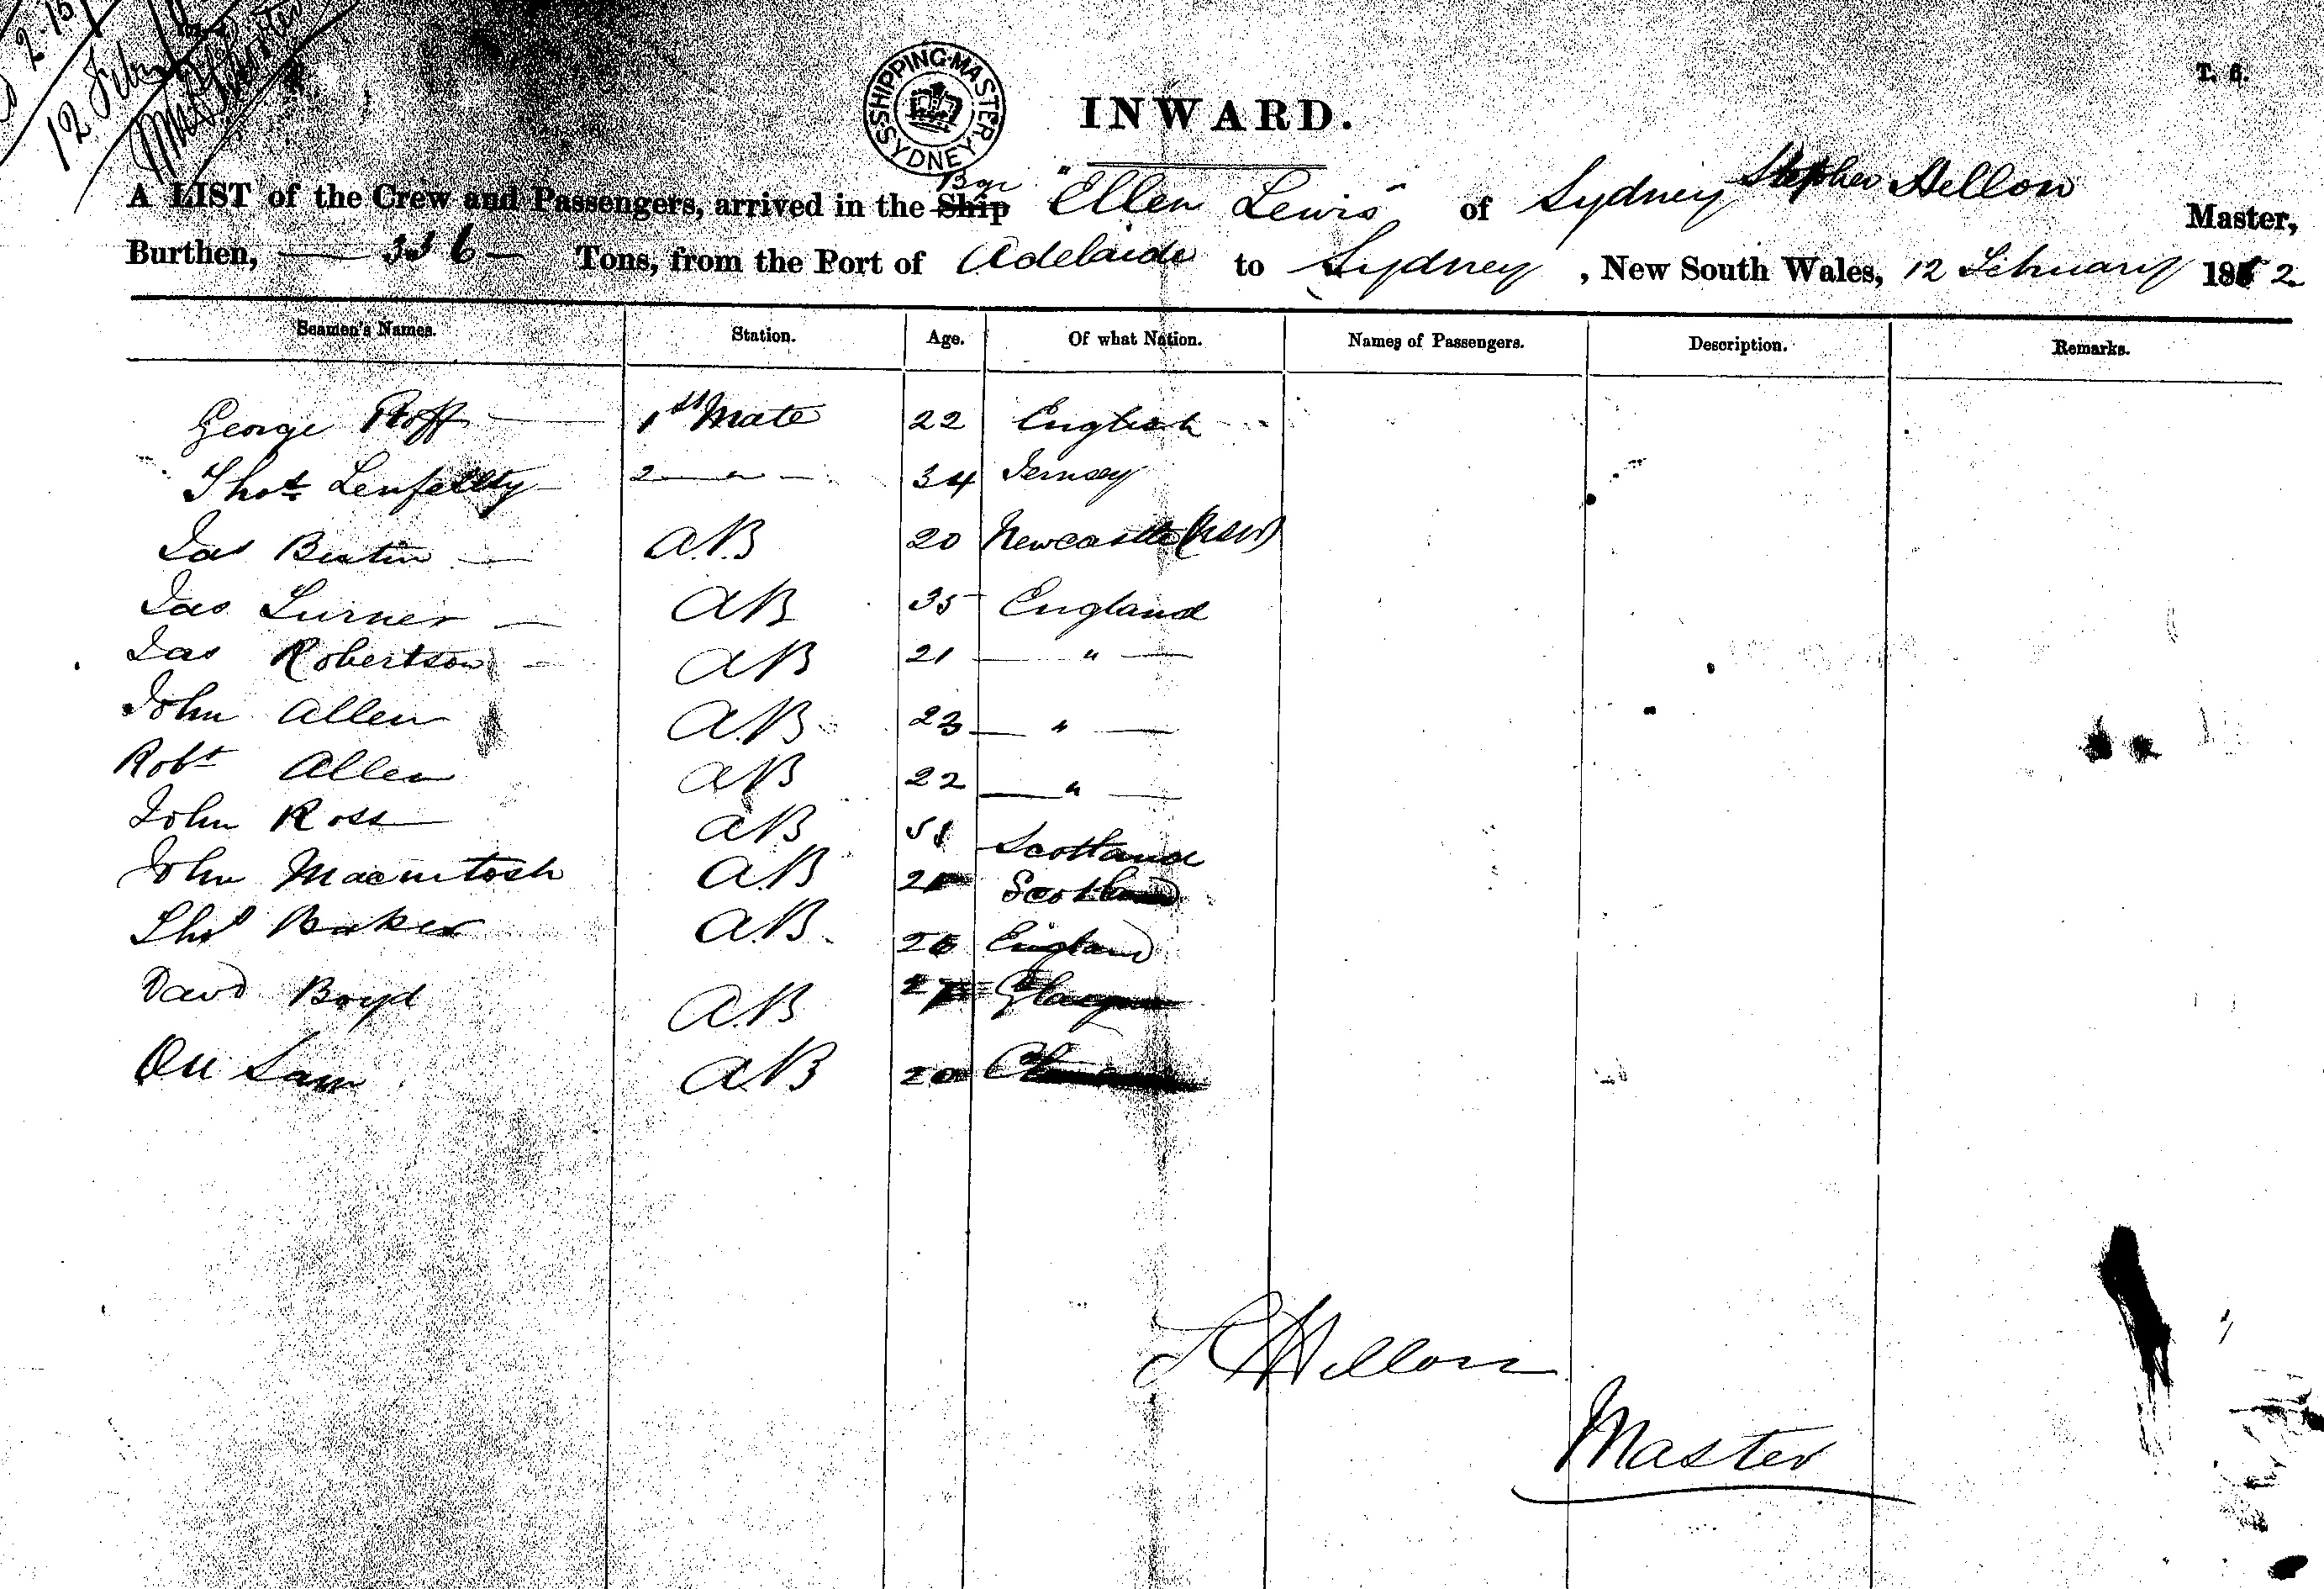 12 Feby
SHIPPING MASTER SYDNEY
T. 6.
INWARD.
A LIST of the Crew and Passengers, arrived in the Ship Bqe "Ellen Lewis" of Sydney Stephen Mellon Master,
Burthen, 336 Tons, from the Port of Adelaide to Sydney, New South Wales, 12 February 2
Seamen's Names. Station. Age. Of what Nation. Names of Passengers. Description. Remarks.
George 1st Mate 22 English
Thos 2 — " — 34
Jas A.B 20 Newcastle (NSW)
Jas Turner — AB 35 England
Jas Robertson — AB 21 — " —
John Allen A.B 23 — " —
Robt Allen AB 22 — " —
John Ross AB 51 Scotland
John Macintosh A.B 21 Scotland
Thos Baker A.B. 26 England
David Boyd A.B Glasgow
Sam A.B 20
Mellon
Master